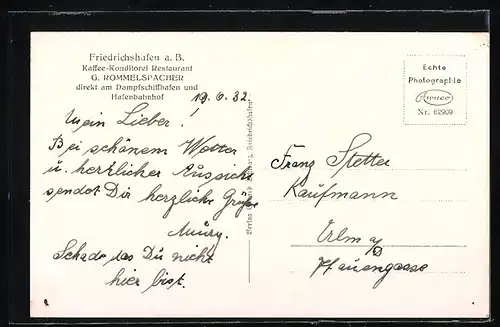 Friedrichshafen a. B.
Kaffee-Konditorei Restaurant
G. ROMMELSPACHER
direkt am Dampfschiffhafen und
Hafenbahnhof
19.6.32.
Mein Lieber!
Bei schönem Wetter
u. herrlicher Aussicht
sendet Dir herzliche Grüße
Schade das Du nicht
hier bist.
Verlag Friedrichshafen
Echte
Photographie
Nr. 62909
Franz Stetter
Kaufmann
Ulm a/D
Pfauengasse